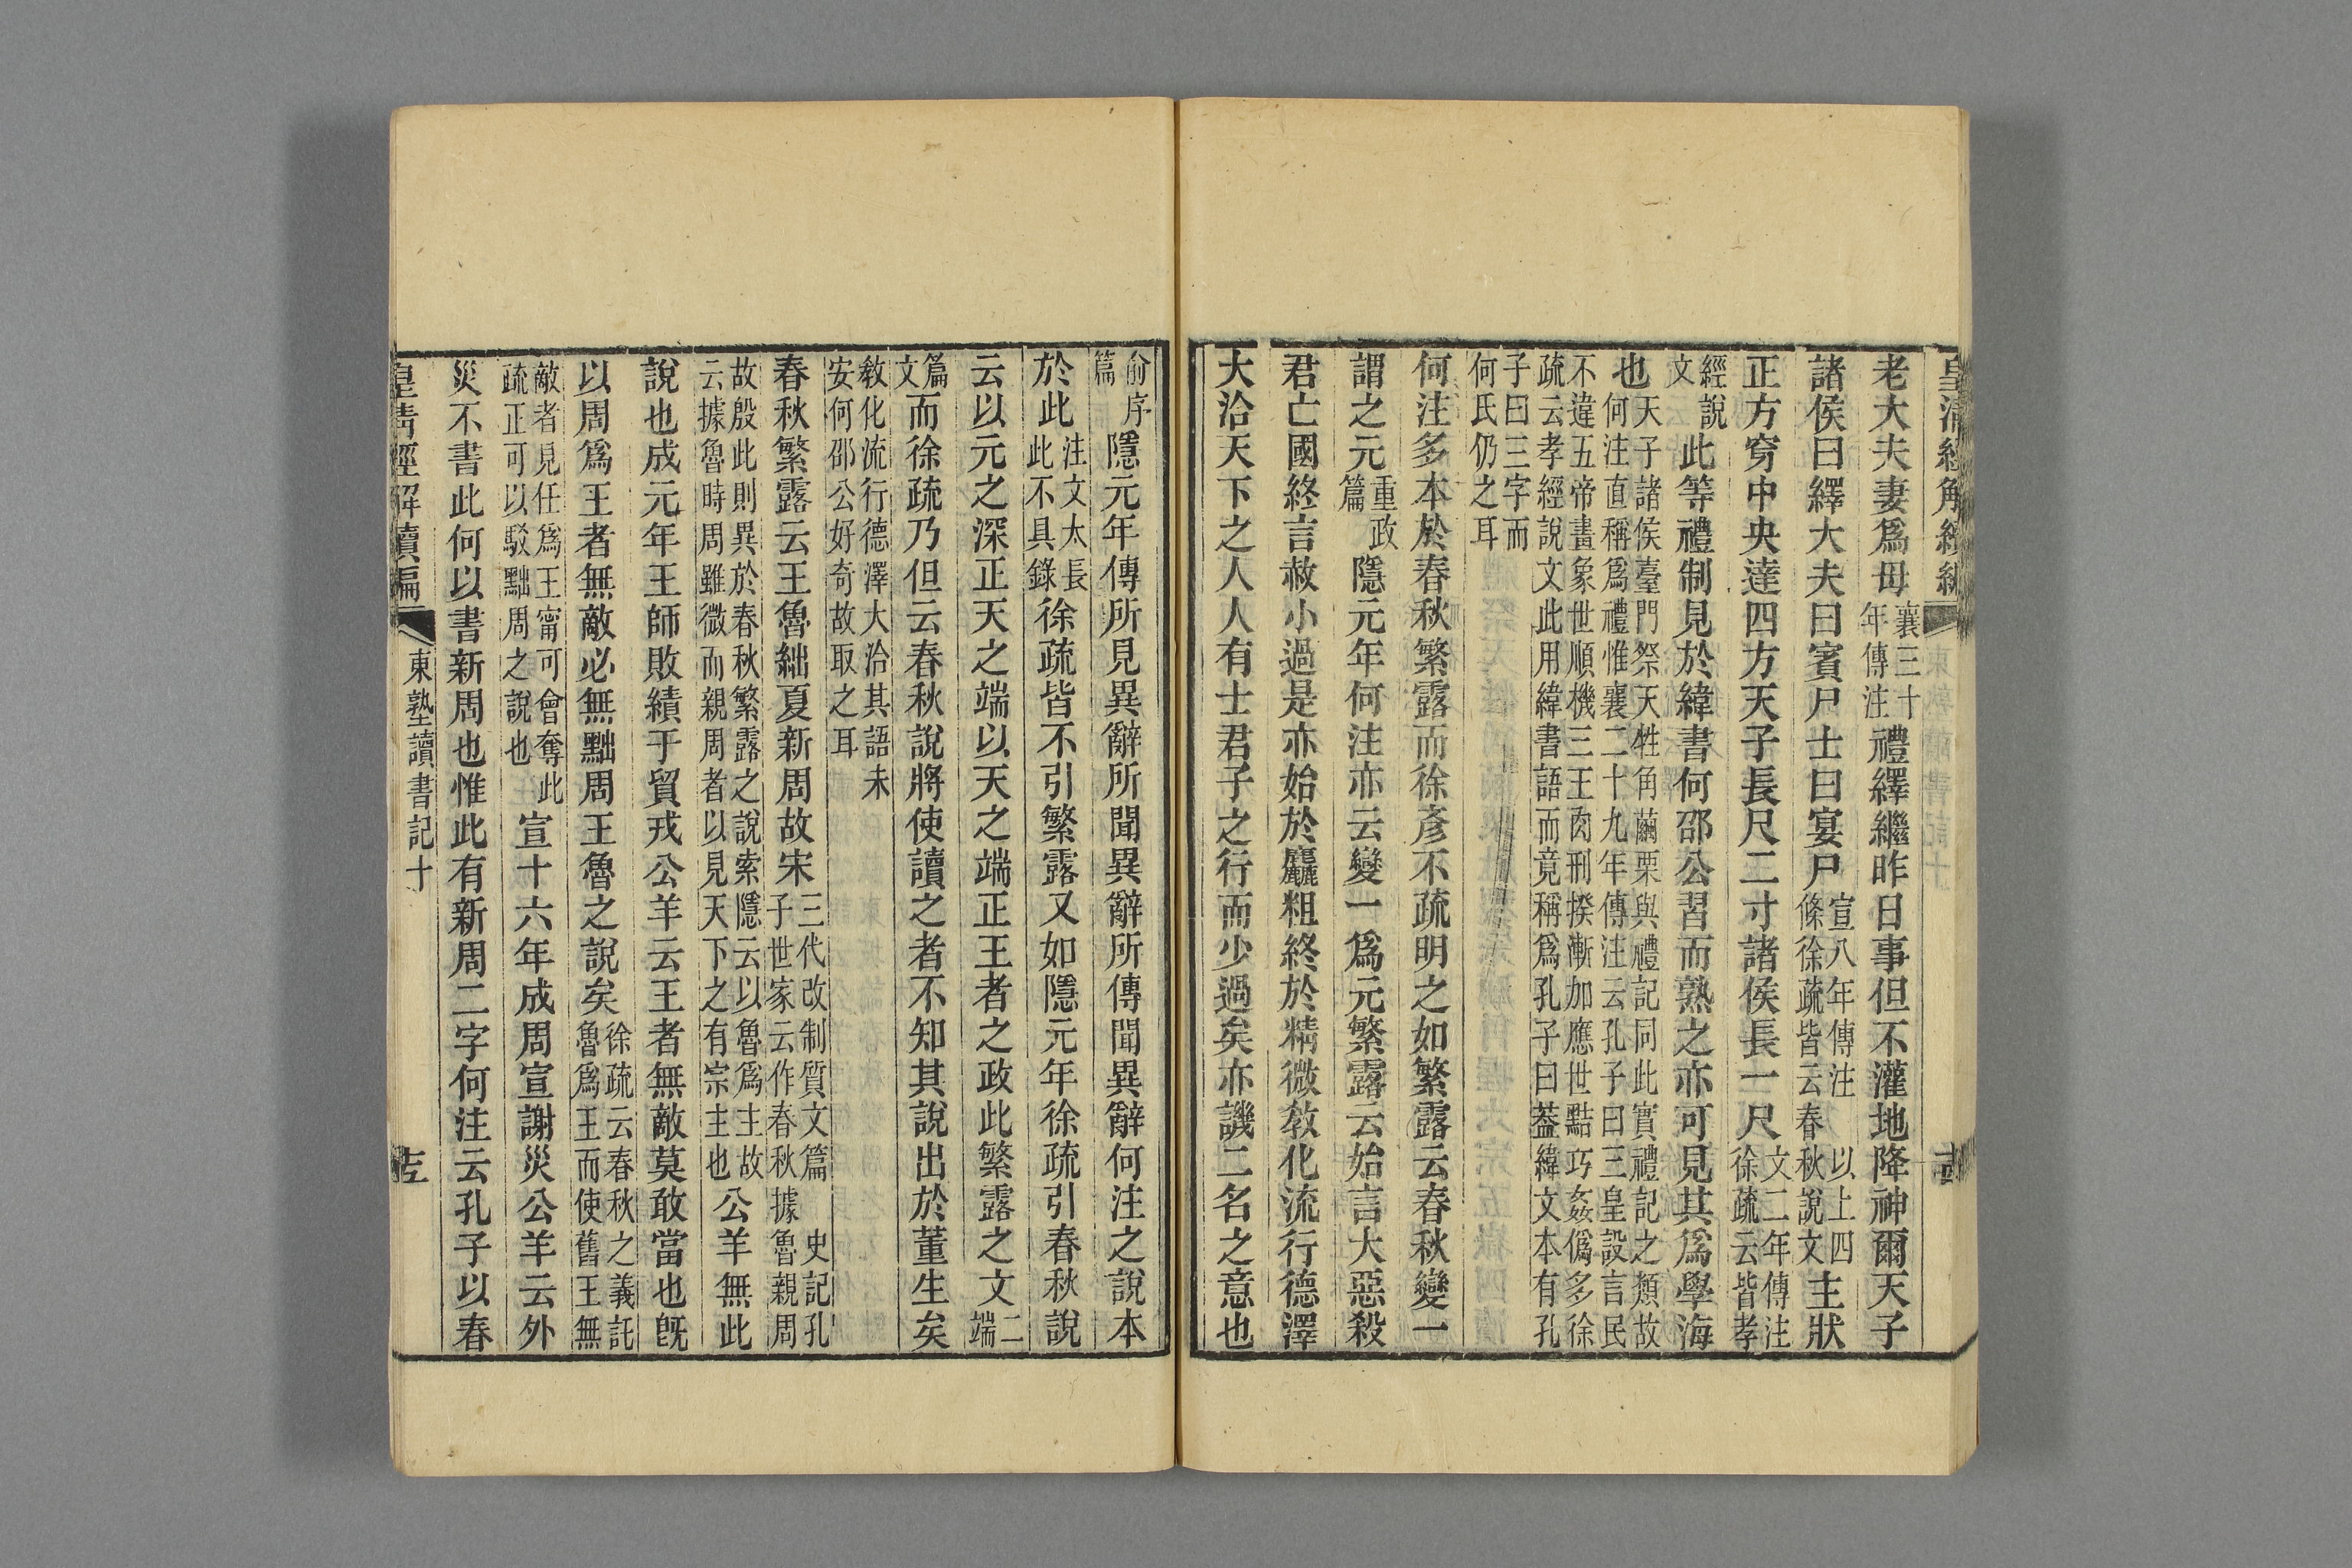 老大夫妻爲母襄三十年傳注禮繹繼昨日事但不灌地降神爾天子
諸侯曰繹大夫曰賓尸士曰宴尸宣八年傳注 以上四條徐疏皆云春秋說文主狀
正方穿中央達四方天子長尺二寸諸侯長一尺文二年傳注徐疏云皆孝
經說文此等禮制見於緯書何邵公習而熟之亦可見其爲學海
也天子諸侯臺門祭天牲角繭栗與禮記同此實禮記之類故何注直稱爲禮惟襄二十九年傳注云孔子曰三皇設言民
不違五帝畫象世順機三王肉刑揆漸加應世黠巧姦僞多徐疏云孝經說文此用緯書語而竟稱爲孔子曰葢緯文本有孔
子曰三字而何氏仍之耳
何注多本於春秋繁露而徐彥不疏明之如繁露云春秋變一
謂之元重政篇隱元年何注亦云變一爲元繁露云始言大惡殺
君亡國終言赦小過是亦始於麤粗終於精微教化流行德澤
大洽天下之人人有士君子之行而少過矣亦譏二名之意也
俞序篇隱元年傳所見異辭所聞異辭所傳聞異辭何注之說本
於此注文太長此不具錄徐疏皆不引繁露又如隱元年徐疏引春秋說
云以元之深正天之端以天之端正王者之政此繁露之文二端
篇文而徐疏乃但云春秋說將使讀之者不知其說出於董生矣
教化流行德澤大洽其語未安何邵公好奇故取之耳
春秋繁露云王魯絀夏新周故宋三代改制質文篇 史記孔子世家云作春秋據魯親周
故殷此則異於春秋繁露之說索隱云以魯爲主故云據魯時周雖微而親周者以見天下之有宗主也公羊無此
說也成元年王師敗績于貿戎公羊云王者無敵莫敢當也既
以周爲王者無敵必無黜周王魯之說矣徐疏云春秋之義託魯爲王而使舊王無
敵者見任爲王甯可會奪此疏正可以駁黜周之說也宣十六年成周宣謝災公羊云外
災不書此何以書新周也惟此有新周二字何注云孔子以春
皇清經解續編 東塾讀書記十